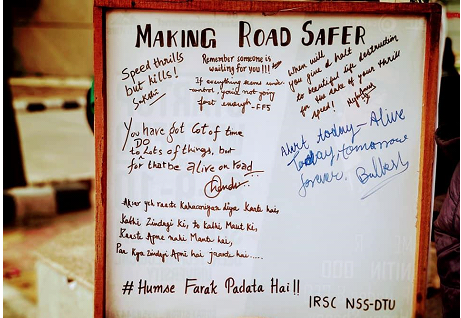 MAKING ROAD SAFER
Speed thrills
but kills!
Remember someone is
waiting for you!!!
If everything seems under
control, you're not going
fast enough
When will
you give a halt
to beautiful life destruction
for the sake of your thrill
speed!
You have got lot of time
DO
to Lots of things, but
for that be alive on road
Alert today - Alive
Today, tomorrow
forever.
Aksar yeh raaste kahaaniyan diya karte hai,
Kabhi Zindagi ki, to kabhi Maut ki,
Raaste Apne nahi Mante hai,
Par Kya Zindagi Apni hai jaante hai.....
# Humse Farak Padata Hai!!
IRSC NSS-DTU